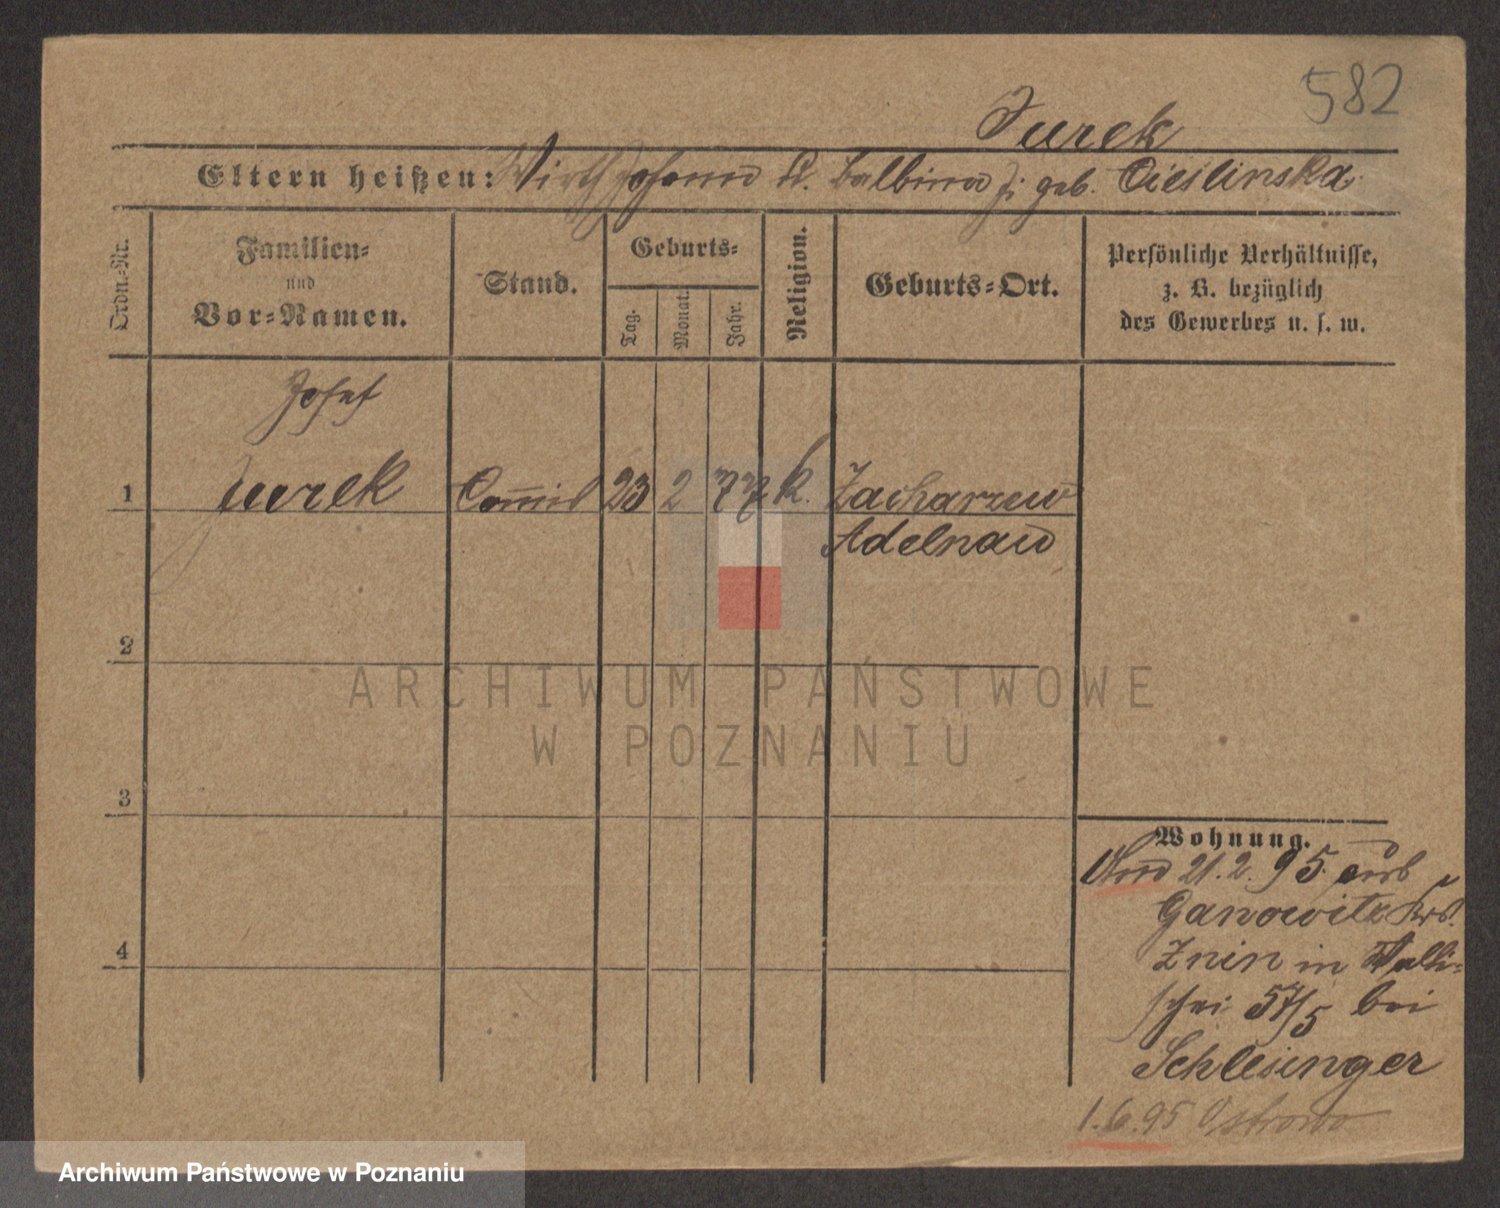 582
Jurek
Eltern heißen: Wirth Johann u. Balbina J. geb. Cieślinska
Ordn.-Nr.
Familien-
und
Vor-Namen.
Stand.
Geburts-
Tag.
Monat.
Jahr.
Religion.
Geburts-Ort.
Persönliche Verhältnisse,
z. B. bezüglich
des Gewerbes u. s. w.
Josef
1 Jurek Commis 23 2 77 k. Zacharzew
Adelnau
2
3
4
Wohnung.
21.2.95
Ganowitz Krs.
Znin in Walli-
schei 57/5 bei
Schlesinger
1.6.95 Ostrowo
ARCHIWUM PAŃSTWOWE
W POZNANIU
Archiwum Państwowe w Poznaniu